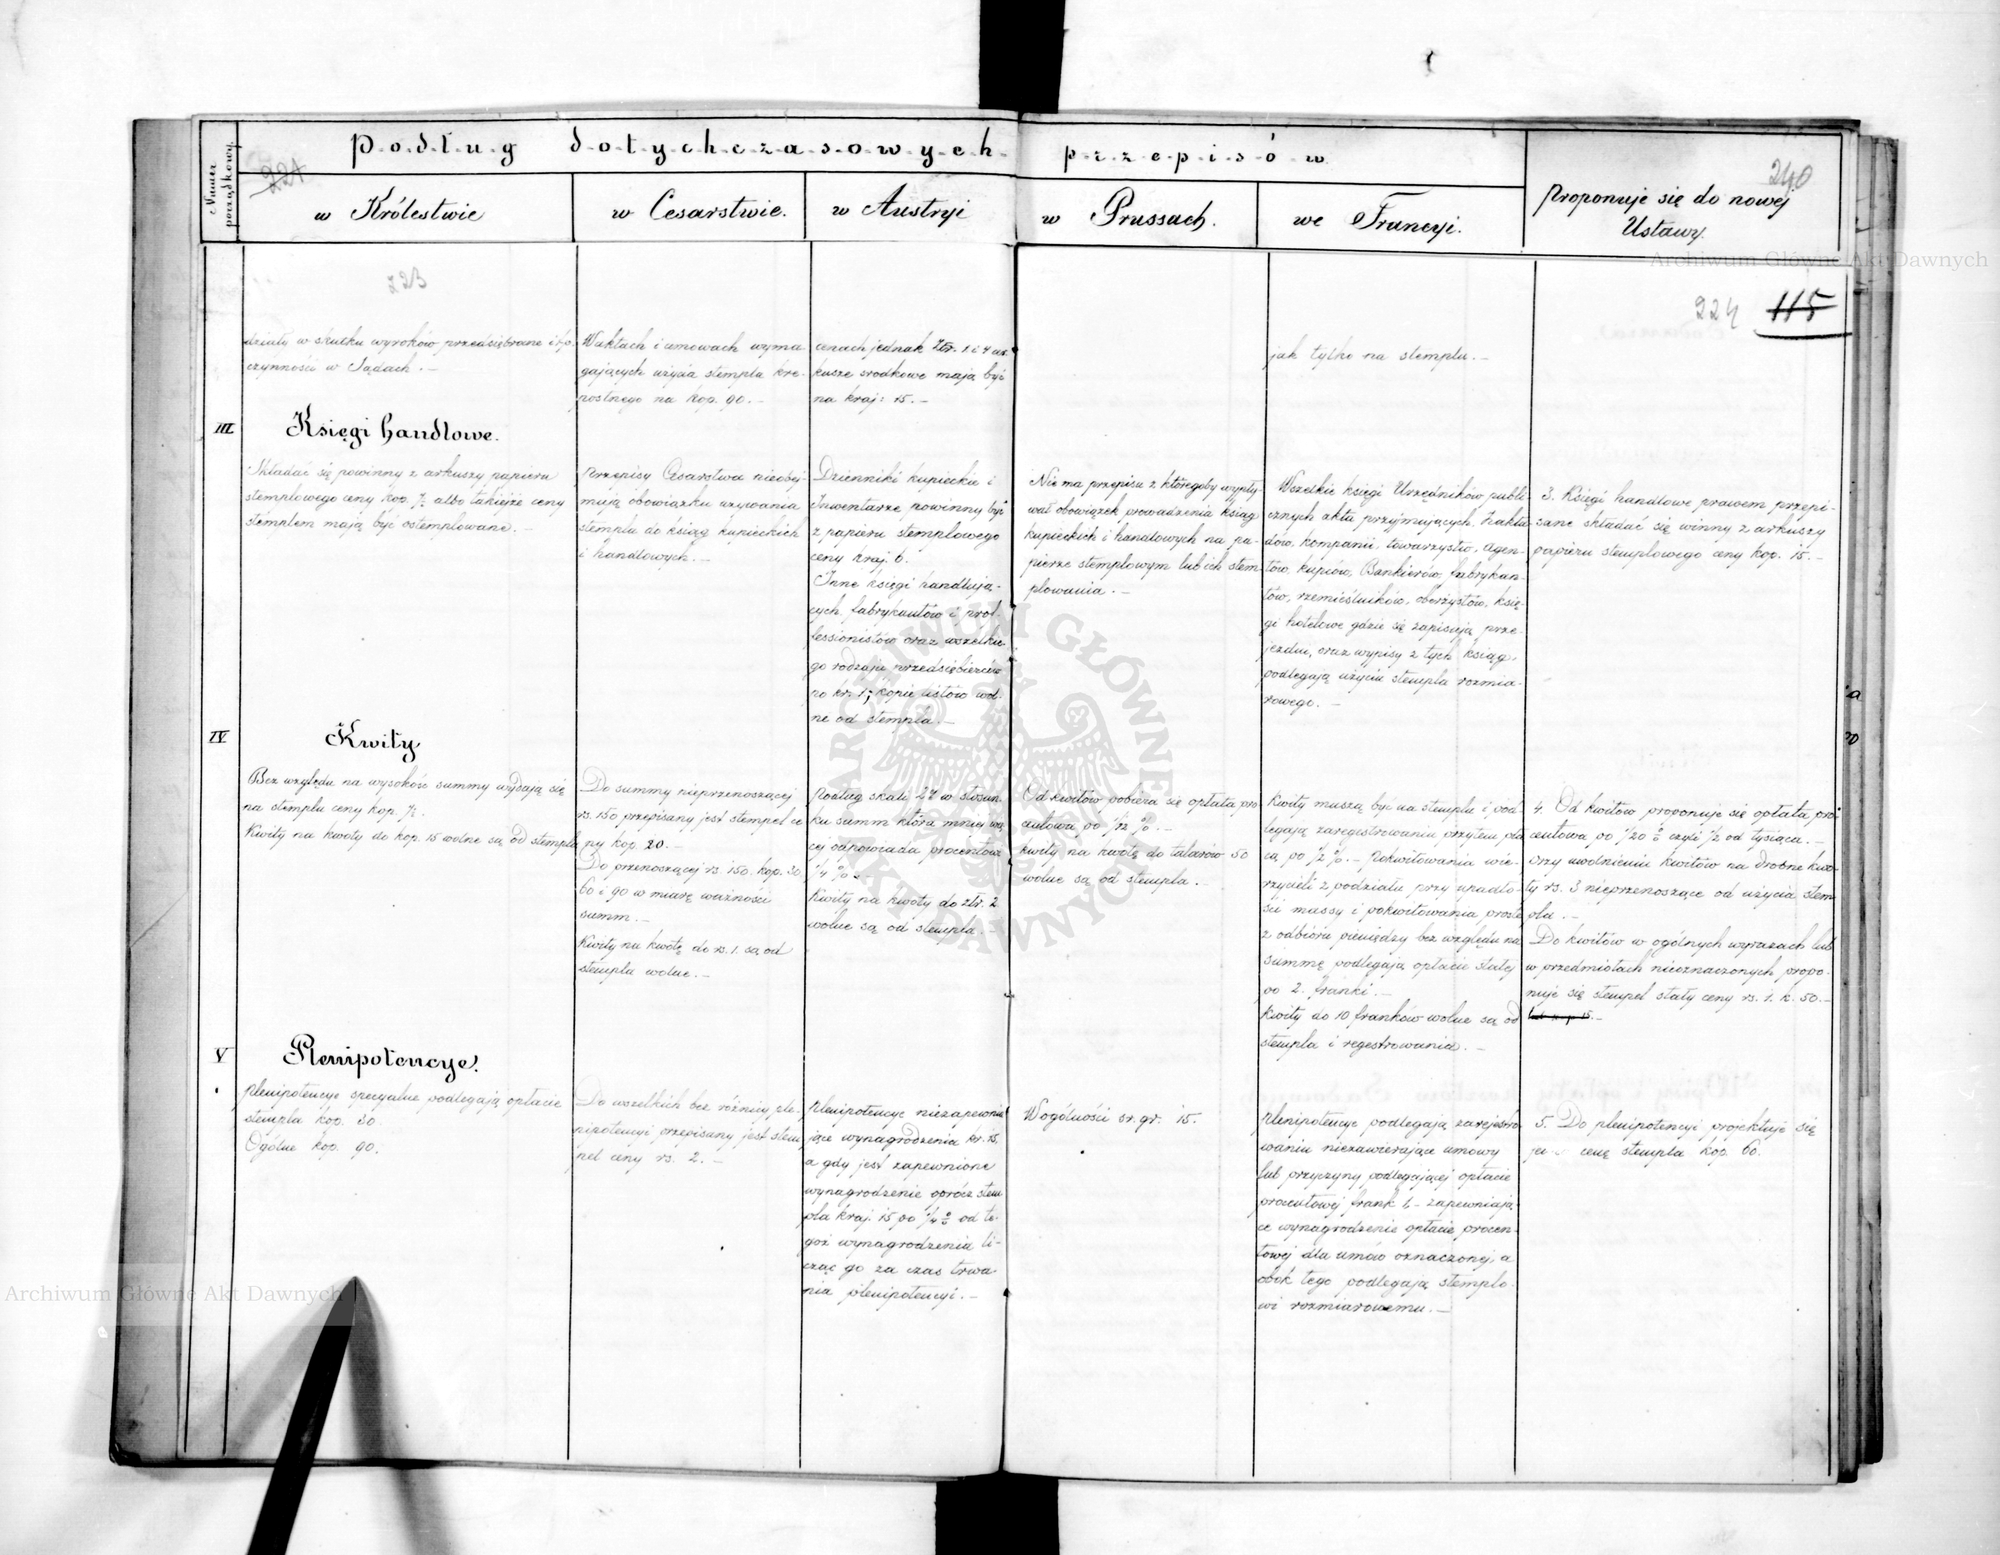 Numer porządkowy.
Podług dotychczasowych przepisów
221
240
w Królestwie
w Cesarstwie.
w Austryi
w Prussach.
we Francyi.
Proponuje się do nowej
Ustawy.
Archiwum Główne Akt Dawnych
223
224
115
działy w skutku wyroków przedsiębrane i t.p.
czynności w Sądach. —
W aktach i umowach wyma
gających użycia stempla kre-
postnego na kop. 90. —
cenach jednak Złr. 1 i 4 ar-
kusze srodkowe mają być
na kraj: 15. —
jak tylko na stemplu. —
III
Księgi handlowe.
Składać się powinny z arkuszy papieru
stemplowego ceny kop. 7½ albo takiejże ceny
stemplem mają być ostemplowane. —
Przepisy Cesarstwa nieobej-
mują obowiązku używania
stempla do ksiąg kupieckich
i handlowych. —
Dzienniki kupieckie i
Inwentarze powinny być
z papieru stemplowego
ceny kraj. 6.
Inne księgi handlują-
cych, fabrykantów i prof-
fessionistów oraz wszelkie-
go rodzaju przedsiębierców
po kr. 1; kopie listów wol-
ne od stempla. —
Nie ma przepisu z któregoby wypły-
wał obowiązek prowadzenia ksiąg
kupieckich i handlowych na pa-
pierze stemplowym lub ich stem
plowania. —
Wszelkie księgi Urzędników publi-
cznych akta przyjmujących, zakła
dów, kompanii, towarzystw, agen-
tów, kupców, Bankierów, fabrykan-
tów, rzemieślników, oberżystów, księ-
gi hotelowe gdzie się zapisują prze-
jezdni, oraz wypisy z tych ksiąg,
podlegają użyciu stempla rozmia-
rowego. —
3. Księgi handlowe prawem przepi-
sane składać się winny z arkuszy
papieru stemplowego ceny kop. 15. —
IV
Kwity
Bez względu na wysokość summy wydają się
na stemplu ceny kop. 7½.
Kwity na kwoty do kop. 15 wolne są od stempla
Do summy nieprzenoszącej
rs. 150 przepisany jest stempel ce
ny kop. 20. —
Do przenoszącej rs. 150. kop. 30
60 i 90 w miarę ważności
summ. —
Kwity na kwotę do rs. 1. są od
stempla wolne. —
Podług skali 2ej w stosun-
ku summ która mniej wię
cej odpowiada procentowi
¼ %. —
Kwity na kwoty do złr. 2
wolne są od stempla. —
Od kwitów pobiera się opłata pro
centowa po 1/12 %. —
Kwity na kwotę do talarów 50
wolne są od stempla. —
Kwity muszą być na stemplu i pod
legają zaregestrowaniu przytem pła
cą po ½ %. — Pokwitowania wie-
rzycieli z podziału przy upadło-
ści massy i pokwitowania proste
z odbioru pieniędzy bez względu na
summę podlegają opłacie stałej
po 2. franki. —
Kwity do 10 franków wolne są od
stempla i regestrowania. —
4. Od kwitów proponuje się opłata pro
centowa po 1/20 % czyli ½ od tysiąca. —
przy uwolnieniu kwitów na drobne kwo-
ty rs. 3 nieprzenoszące od użycia stem
pla. —
Do kwitów w ogólnych wyrazach lub
w przedmiotach nieoznaczonych propo-
nuje się stempel stały ceny rs. 1. k. 50. —
V
Plenipotencye.
Plenipotencye specyalne podlegają opłacie
stempla kop. 30.
Ogólne kop. 90.
Do wszelkich bez różnicy ple-
nipotencyi przepisany jest stem
pel ceny rs. 2. —
Plenipotencye niezapewnia
jące wynagrodzenia kr. 15.
a gdy jest zapewnione
wynagrodzenie oprócz stem
pla kraj. 15 po ¼ % od te-
goż wynagrodzenia li-
cząc go za czas trwa
nia plenipotencyi. —
W ogólności sr. gr. 15.
Plenipotencye podlegają zarejestro
waniu niezawierające umowy
lub przyczyny podlegającej opłacie
procentowej frank 1, — zapewniają
ce wynagrodzenie opłacie procen-
towej dla umów oznaczonej, a
obok tego podlegają stemplo-
wi rozmiarowemu. —
5. Do plenipotencyi projektuje się
cenę stempla kop. 60.
ARCHIWUM GŁÓWNE AKT DAWNYCH
Archiwum Główne Akt Dawnych